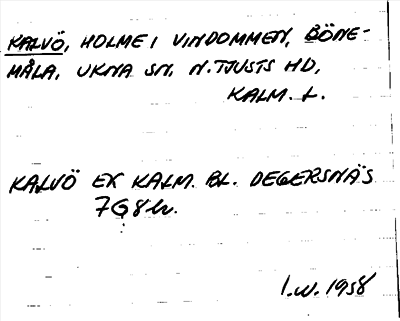 KALVÖ, HOLME I VINDOMMEN, BÖNE-
MÅLA, UKNA SN, N. TJUSTS HD,
KALM. L.
KALVÖ EK KALM. BL. DEGERSNÄS
7G8h.
I.W. 1958